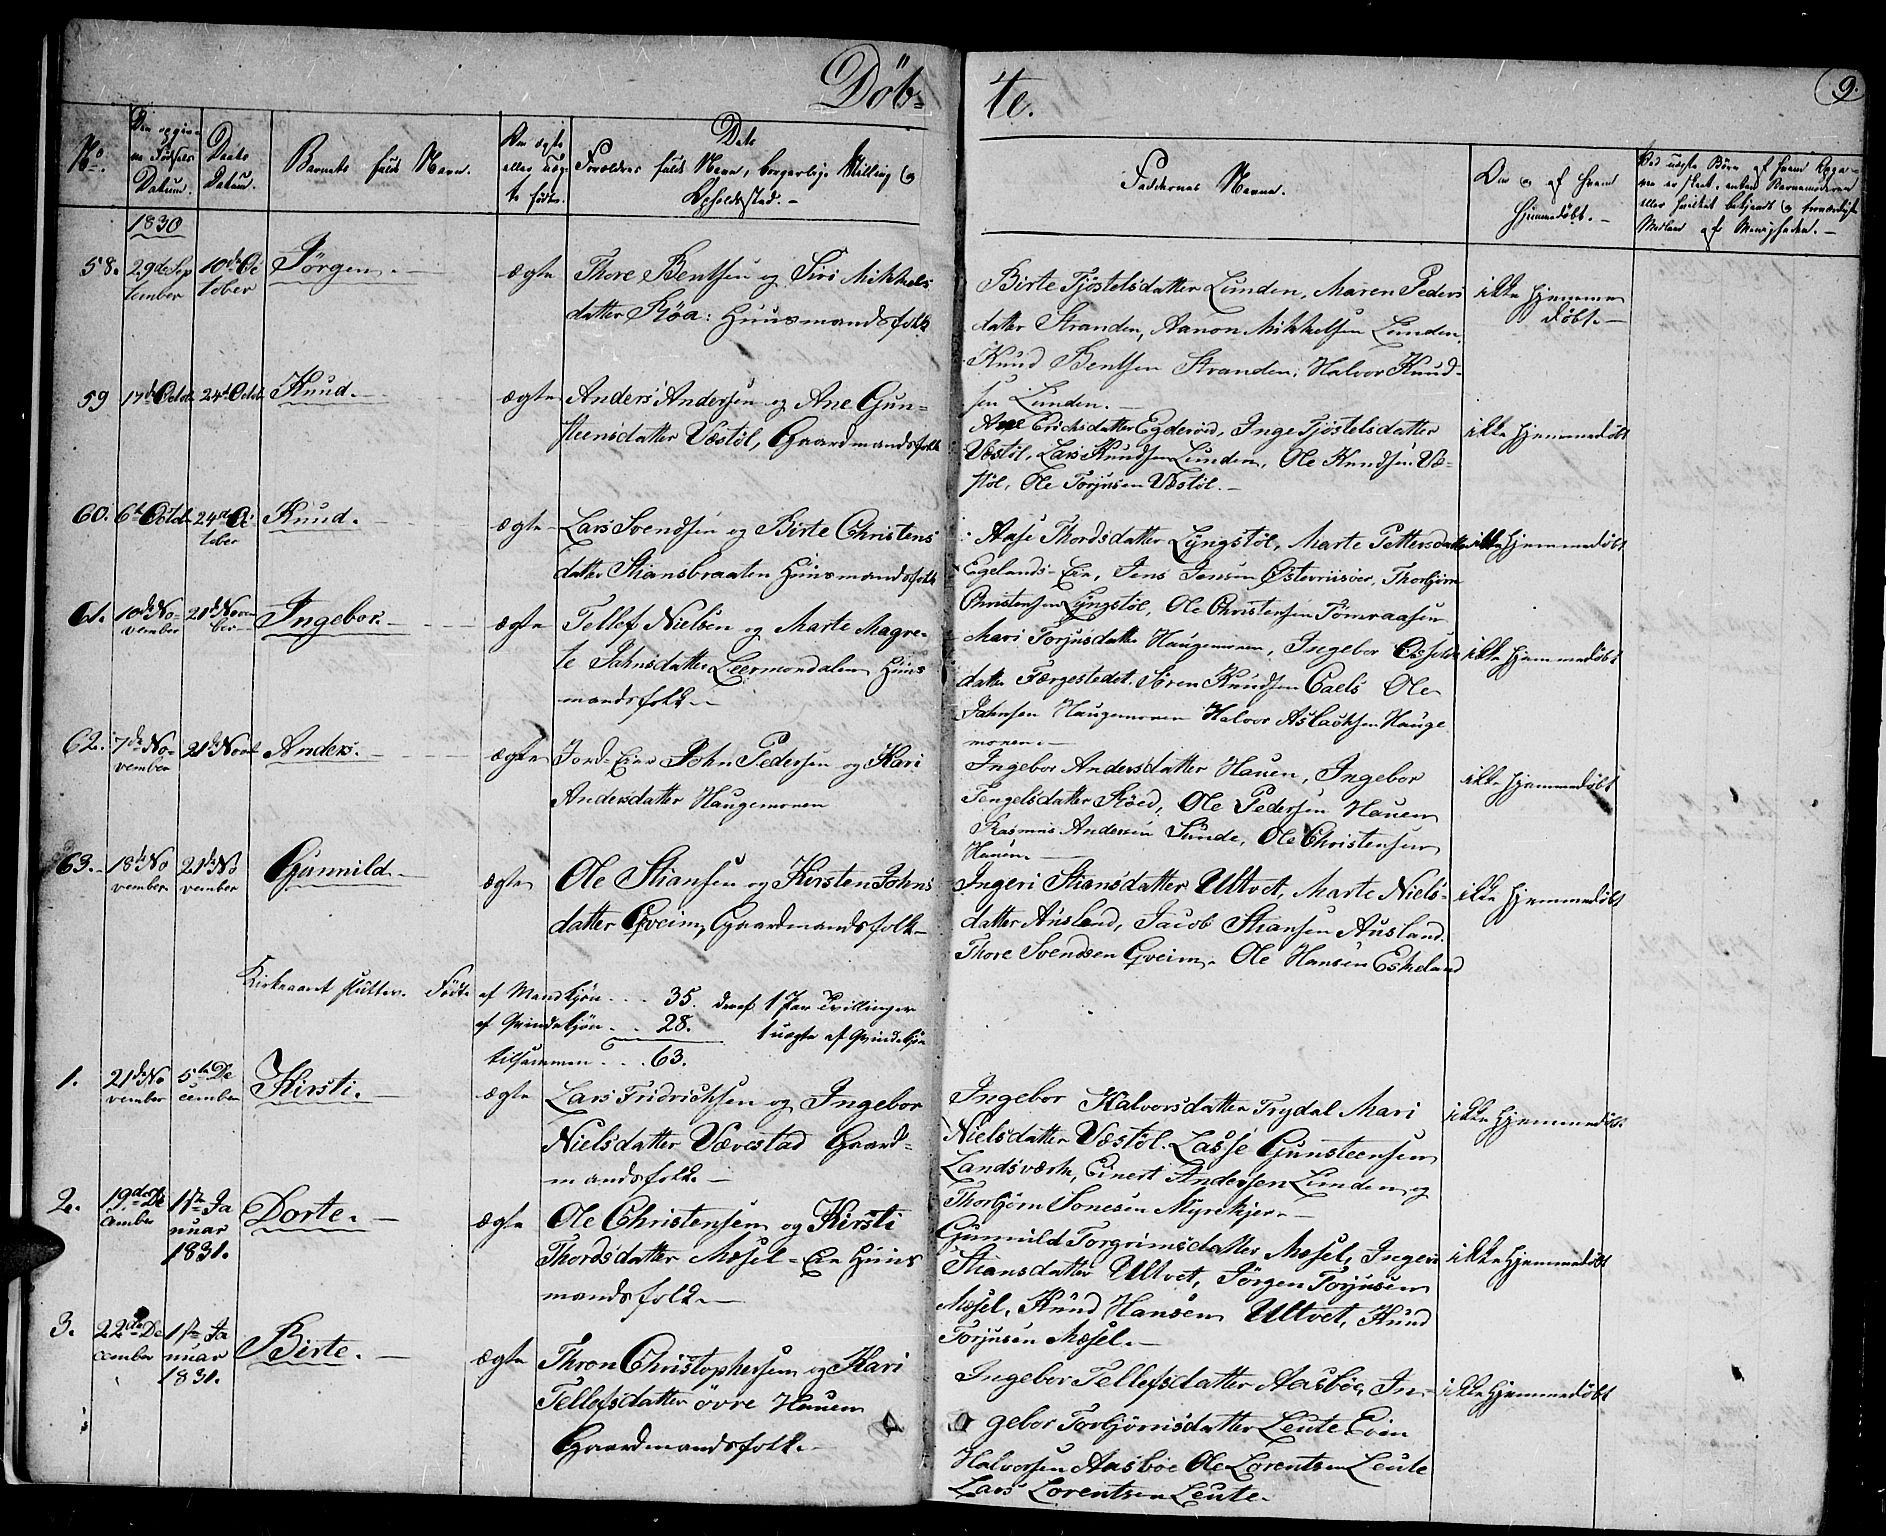 Döb=
te.
9.
No.
Den opgiv=
ne Fødsels
Datum.
Daabs
Datum.
Barnets fulde Navn.
Om ægte
eller uæg=
te født.
Forældres fulde Navn, borgerlige Stilling og
Opholdssted. -
Faddernes Navne.
Om og af hvem
hjemmedøbt. -
1830
58. 29de Sep
tember
10de Oc
tober
Jörgen. -
ægte
Thore Bentsen og Siri Mikkels
datter Röa: Huusmandsfolk
Birte Tjöstelsdatter Lunden, Maren Peders
datter Stranden, Aanon Mikkelsen Lunden,
Knud Bentsen Stranden, Halvor Knud-
sen Lunden. -
ikke hjemme
döbt. -
59 17de Octob. 24de Octob. Knud. -
ægte
Anders Andersen og Ane Gun=
steensdatter Væstöl, Gaardmandsfolk
Ane Erichsdatter Egderöd, Inge Tjöstelsdatter
Væstöl, Lars Knudsen Lunden, Ole Knudsen Væ-
stöl, Ole Torjusen Væstöl. -
ikke hjemmedöbt
60. 6te Octob. 24de Oc
tober
Knud. -
ægte
Lars Svendsen og Birte Christens
datter Stiansbraaten Huusmandsfolk
Aase Thordsdatter Lyngstöl, Marte Pettersdatter
Egelands-Eie, Jens Jensen Østerriisöer, Thorbjörn
Christensen Lyngstöl, Ole Christensen Tömraasen
ikke hjemmedöbt
61. 10de No-
vember
21de Novem
ber
Ingebor. -
ægte
Tellef Nielsen og Marte Magre-
te Jahnsdatter Leermondalen Huus
mandsfolk. -
Mari Torjusdatter Haugemonen, Ingebor
datter Færgestedet. Sören Knudsen Gaels Ole
Jahnsen Haugemonen Halvor Aslachsen Hauge
monen. -
ikke hjemmedöbt
62. 7de No-
vember
21de Novb Anders. -
ægte
Jord-Eier John Pedersen og Kari
Andersdatter Haugemonen
Ingebor Andersdatter Hauen, Ingebor
Tengelsdatter Röed, Ole Pedersen Hauen
Rasmus Andersen Sunde, Ole Christensen
Hauen. -
ikke hjemmedöbt
63. 18de No
vember
21de No
vember
Gunnild. -
ægte
Ole Stiansen og Kirsten Johns
datter Gveim, Gaardmandsfolk -
Ingeri Stiansdatter Ultvet, Marte Niels-
datter Ausland, Jacob Stiansen Ausland.
Thore Svendsen Gveim. Ole Hansen Eskeland
ikke hjemmedöbt
Kirkeaaret slutter. Födte af Mandkjön . . . 35. deraf 1 Par Tvillinger
af Qvindekjön . . 28. 1 uægte af Qvindekjön
tilsammen . . . 63.
1. 21de No
vember
5te De
cember
Kirsti. -
ægte
Lars Fridrichsen og Ingebor
Nielsdatter Vævestad Gaard-
mandsfolk. -
Ingebor Halvorsdatter Trydal Mari
Nielsdatter Væstöl. Lasse Gunsteensen
Landsværk, Einert Andersen Lunden og
Thorbjörn Sonesen Myrekjer. -
ikke hjemmedöbt.
2. 19de De
cember
1ste Ja
nuar
1831.
Dorte. -
ægte
Ole Christensen og Kirsti
Thordsdatter Mæsel-Eie Huus
mandsfolk. -
Gunnild Torgrimsdatter Mæsel, Ingeri
Stiansdatter Ultvet, Jörgen Torjusen
Mæsel, Knud Hansen Ultvet, Knud
Torjusen Mæsel. -
ikke hjemmedöbt
3. 22de De
cember
1ste Ja
nuar
1831.
Birte. -
ægte
Thron Christophersen og Kari
Tellefsdatter övre Hauen
Gaardmandsfolk. -
Ingebor Tellefsdatter Aasböe, In-
gebor Torbjörnsdatter Leute Even
Halvorsen Aasböe Ole Lorentsen Leute
Lars Lorentsen Leute.
ikke hjemmedöbt